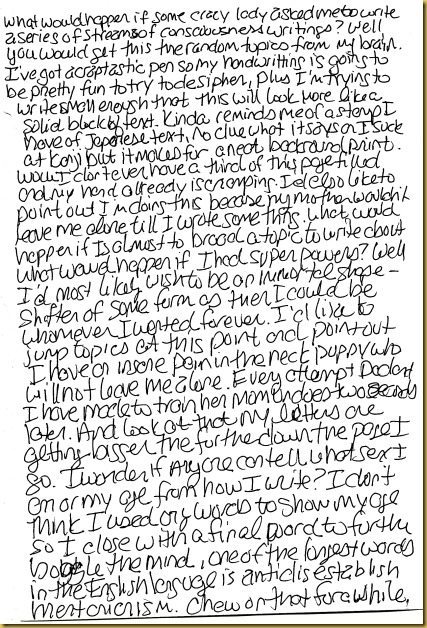 what would happen if some crazy lady asked me to write
a series of streams of consciousness writings? Well
you would get this the random topics from my brain.
I've got a craptastic pen so my handwriting is going to
be pretty fun to try to desipher, plus I'm trying to
write small enough that this will look more like a
solid block of text. Kinda reminds me of a stamp I
have of Japanese text, no clue what it says or I suck
at Konji but it makes for a neat background print.
wow I don't even have a third of this page filled
and my hand already is cramping. I'd also like to
point out I'm doing this because my mother wouldn't
leave me alone till I wrote some thing. what would
happen if is almost to broad a topic to write about
what would happen if I had super powers? Well
I'd most likely wish to be an immortal shape-
shifter of some form as then I could be
whomever I wanted forever. I'd like to
jump topics at this point and point out
I have an insane pain in the neck puppy who
will not leave me alone. Every attempt
I have made to train her mom undoes two seconds
later. And look at that my letters are
getting bigger the further down the page I
go. I wonder if anyone can tell what sex I
am or my age from how I write? I don't
think I used any words to show my age
so I close with a final word to further
boggle the mind, one of the longest words
in the English language is antidisestablish
mentarianism. Chew on that for a while.